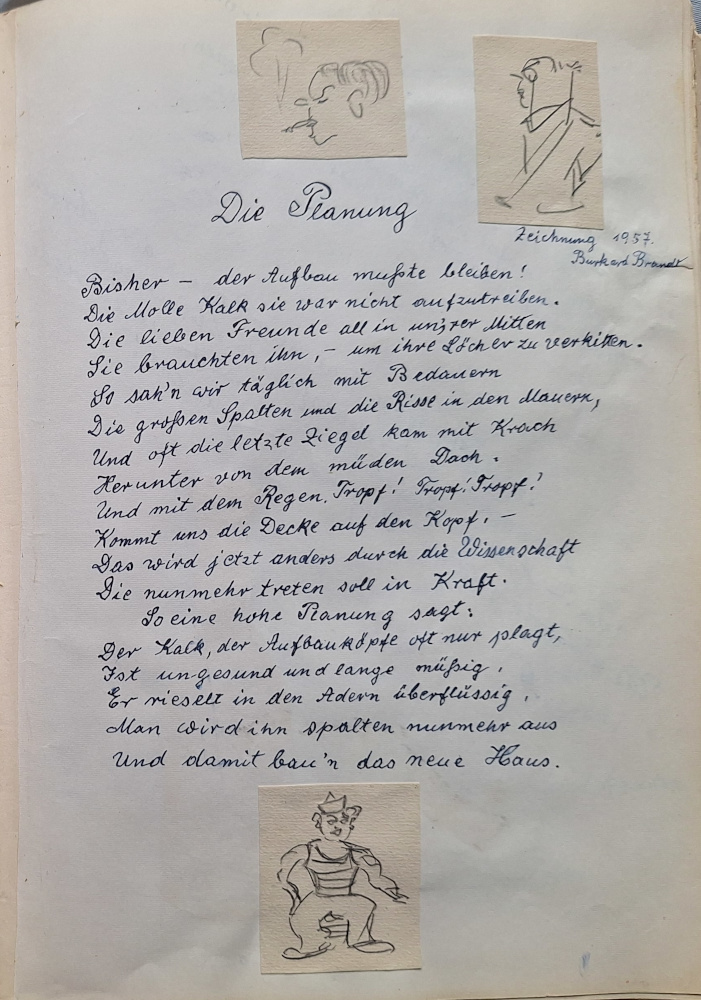 Die Planung
Zeichnung 1957.
Burkard Brandt
Bisher – der Aufbau mußte bleiben!
Die Molle Kalk sie war nicht aufzutreiben.
Die lieben Freunde all in uns'rer Mitten
Sie brauchten ihn, – um ihre Löcher zu verkitten.
So sah'n wir täglich mit Bedauern
Die großen Spalten und die Risse in den Mauern,
Und oft die letzte Ziegel kam mit Krach
Herunter von dem müden Dach.
Und mit dem Regen, Tropf! Tropf! Tropf!
Kommt uns die Decke auf den Kopf. –
Das wird jetzt anders durch die Wissenschaft
Die nunmehr treten soll in Kraft.
So eine hohe Planung sagt:
Der Kalk, der Aufbauköpfe oft nur plagt,
Ist ungesund und lange müßig,
Er rieselt in den Adern überflüssig,
Man wird ihn spalten nunmehr aus
Und damit bau'n das neue Haus.